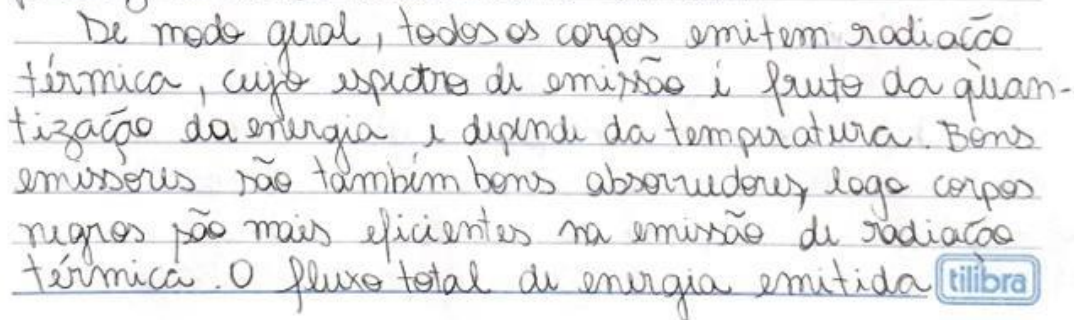 De modo geral, todos os corpos emitem radiação
térmica, cujo espectro de emissão é fruto da quan-
tização da energia e depende da temperatura. Bons
emissores são também bons absorvedores, logo corpos
negros são mais eficientes na emissão de radiação
térmica. O fluxo total de energia emitida tilibra